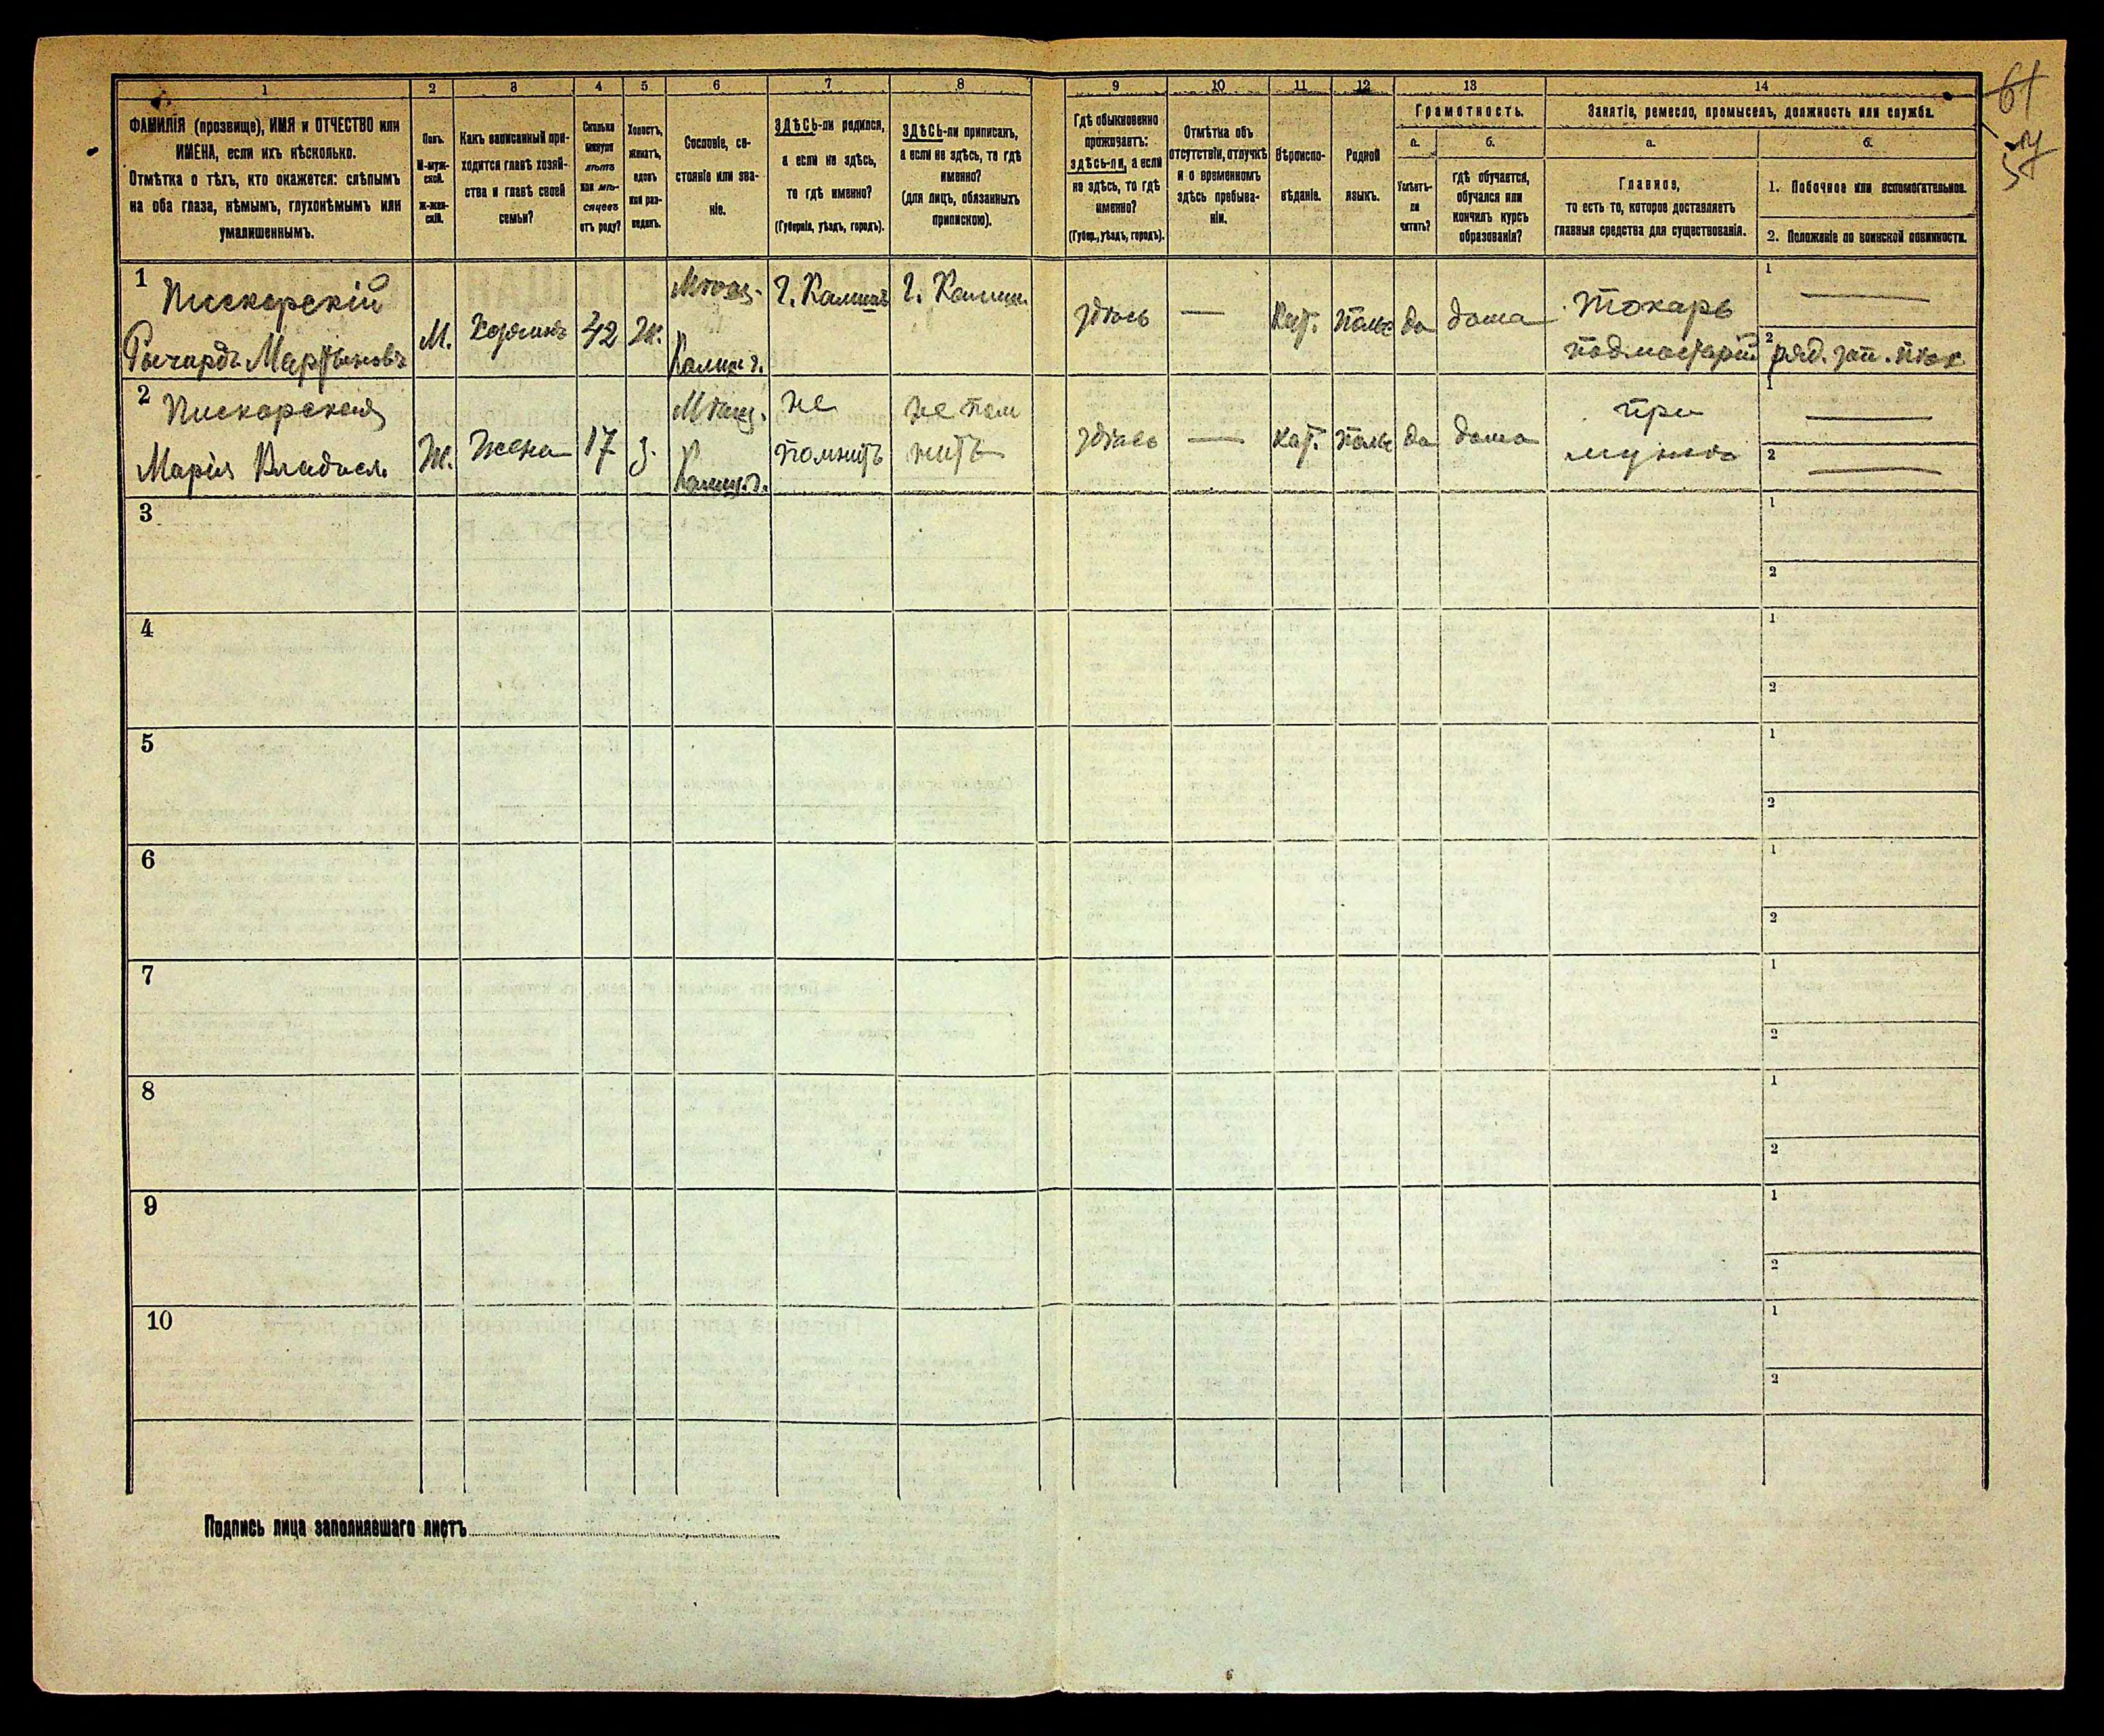 1 2 3 4 5 6 7 8 9 10 11 12 13 14
ФАМИЛІЯ (прозвище), ИМЯ и ОТЧЕСТВО или
ИМЕНА, если ихъ нѣсколько.
Отмѣтка о тѣхъ, кто окажется: слѣпымъ
на оба глаза, нѣмымъ, глухонѣмымъ или
умалишеннымъ.
Полъ.
М-муж-
ской.
Ж-жен-
скій.
Какъ записанный при-
ходится главѣ хозяй-
ства и главѣ своей
семьи?
Сколько
минуло
лѣтъ
или мѣ-
сяцевъ
отъ роду?
Холостъ,
женатъ,
вдовъ
или раз-
веденъ.
Сословіе, со-
стояніе или зва-
ніе.
ЗДѢСЬ-ли родился,
а если не здѣсь,
то гдѣ именно?
(Губернія, уѣздъ, городъ).
ЗДѢСЬ-ли приписанъ,
а если не здѣсь, то гдѣ
именно?
(для лицъ, обязанныхъ
припискою).
Гдѣ обыкновенно
проживаетъ:
здѣсь-ли, а если
не здѣсь, то гдѣ
именно?
(Губер., уѣздъ, городъ).
Отмѣтка объ
отсутствіи, отлучкѣ
и о временномъ
здѣсь пребыва-
ніи.
Вѣроиспо-
вѣданіе.
Родной
языкъ.
Грамотность.
а.
Умѣетъ-
ли
читать?
б.
гдѣ обучается,
обучался или
кончилъ курсъ
образованія?
Занятіе, ремесло, промыселъ, должность или служба.
а.
Главное,
то есть то, которое доставляетъ
главныя средства для существованія.
б.
1. Побочное или вспомогательное.
2. Положеніе по воинской повинности.
1 Пискорскій
Рычардъ Мартыновъ
М.
Хозяинъ
42
Ж.
Мѣщ.
Калиш г.
Г. Калишъ
Г. Калиш.
здѣсь
—
Кат.
Польс
да
дома
Токарь
подмастерій
1
2 ряд. зап. пѣх
2 Пискорская
Марія Владисл.
Ж.
Жена
17
з.
Мѣщ.
Калиш. г.
не
помнитъ
не пом
нитъ
здѣсь
—
кат.
польс
да
дома
при
мужѣ
1
2
3 1
2
4 1
2
5 1
2
6 1
2
7 1
2
8 1
2
9 1
2
10 1
2
Подпись лица заполнявшаго листъ